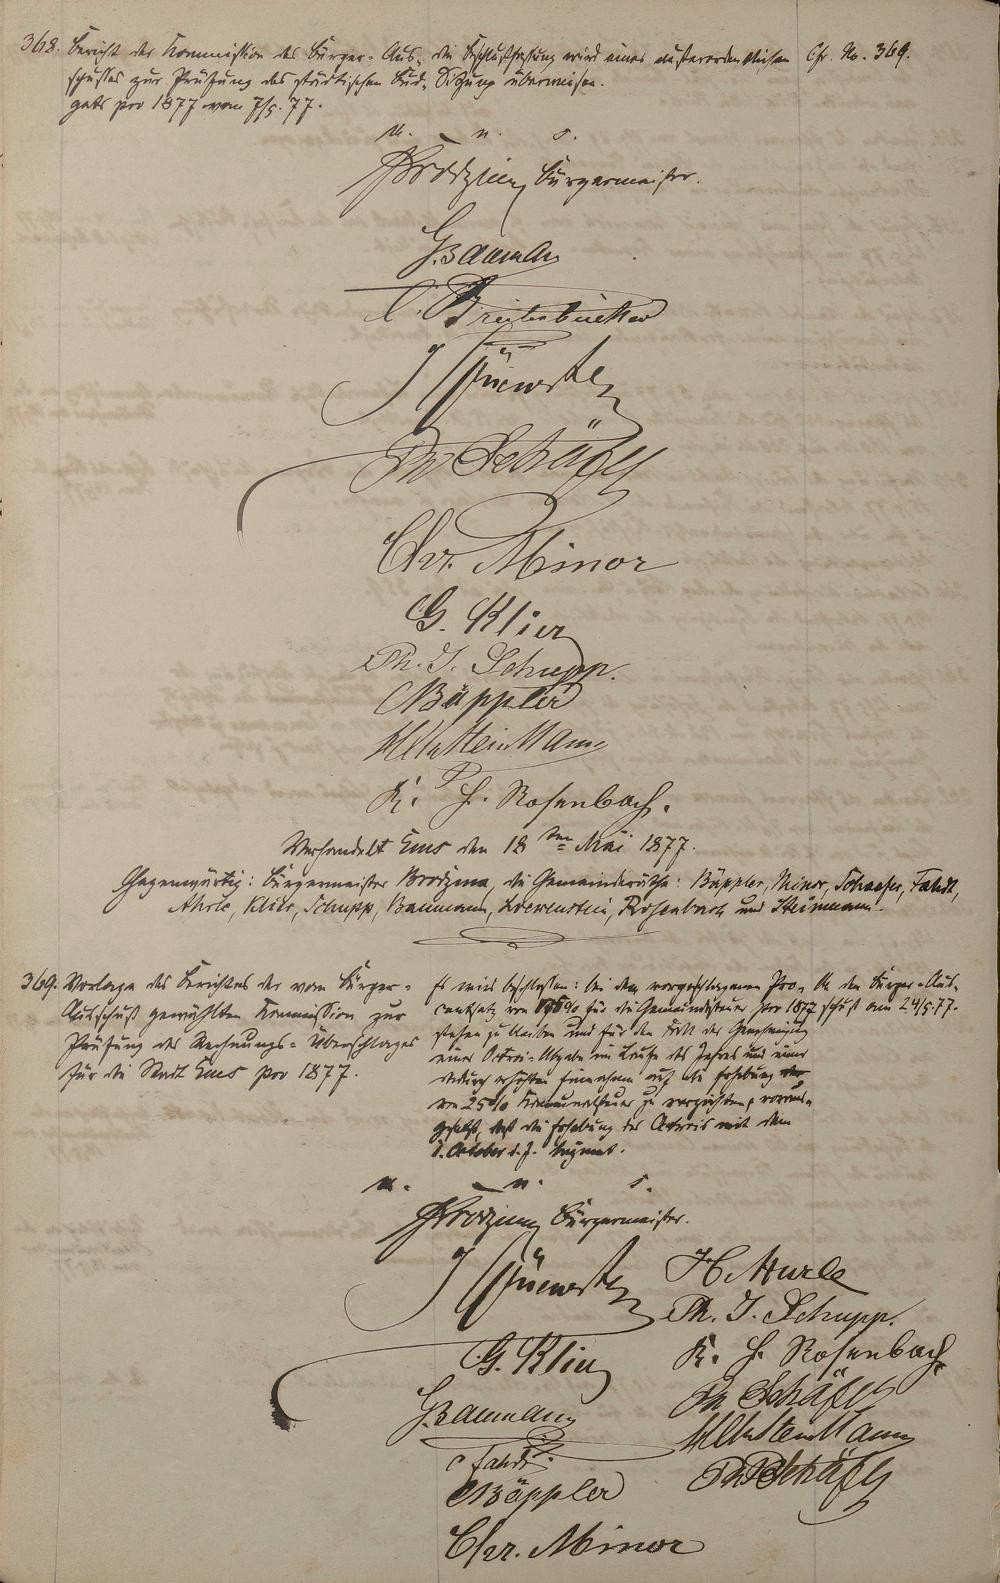 368. Bericht der Kommission des Bürger-Aus-
schusses zur Prüfung des städtischen Bud-
gets pro 1877 vom 7/5. 77.
die Beschlußfassung wird einer außerordentlichen
Sitzung überwiesen.
Cfr. No. 369.
v. n. s.
Brodzina, Bürgermeister.
G. Baumann
C. Breitenbücher
Ph Schäfer
Chr. Minor
G. Klier
Ph. J. Schupp.
Bäppler
Steinmann
K. H. Rosenbach.
Verhandelt Ems den 18ten Mai 1877.
Gegenwärtig: Bürgermeister Brodzina, die Gemeinderäthe: Bäppler, Minor, Schaefer, Fahdt,
Ahrle, Klier, Schupp, Baumann, Loewenstein, Rosenbach und Steinmann.
369. Vorlage des Berichtes der vom Bürger-
Ausschuß gewählten Kommission zur
Prüfung des Rechnungs-Überschlages
für die Stadt Ems pro 1877.
Es wird beschlossen: bei dem vorgeschlagenen Pro-
centsatz von % für die Gemeindesteuer pro 1877
stehen zu bleiben und für den Fall der Genehmigung
einer Octroi-Abgabe im Laufe des Jahres und einer
dadurch erhöhten Einnahme auf die Erhebung
von 25% Kommunalsteuer zu verzichten, voraus-
gesetzt, daß die Erhebung des Octrois mit dem
1. October d. J. beginnt.
An den Bürger-Aus-
schuß am 24/5.77.
v. n. s.
Brodzina, Bürgermeister.
H. Ahrle
Ph. J. Schupp.
G. Klier
K. H. Rosenbach
Ph Schäfer
G. Baumann
Steinmann
C Fahdt.
Ph Schäfer
Bäppler
Chr. Minor